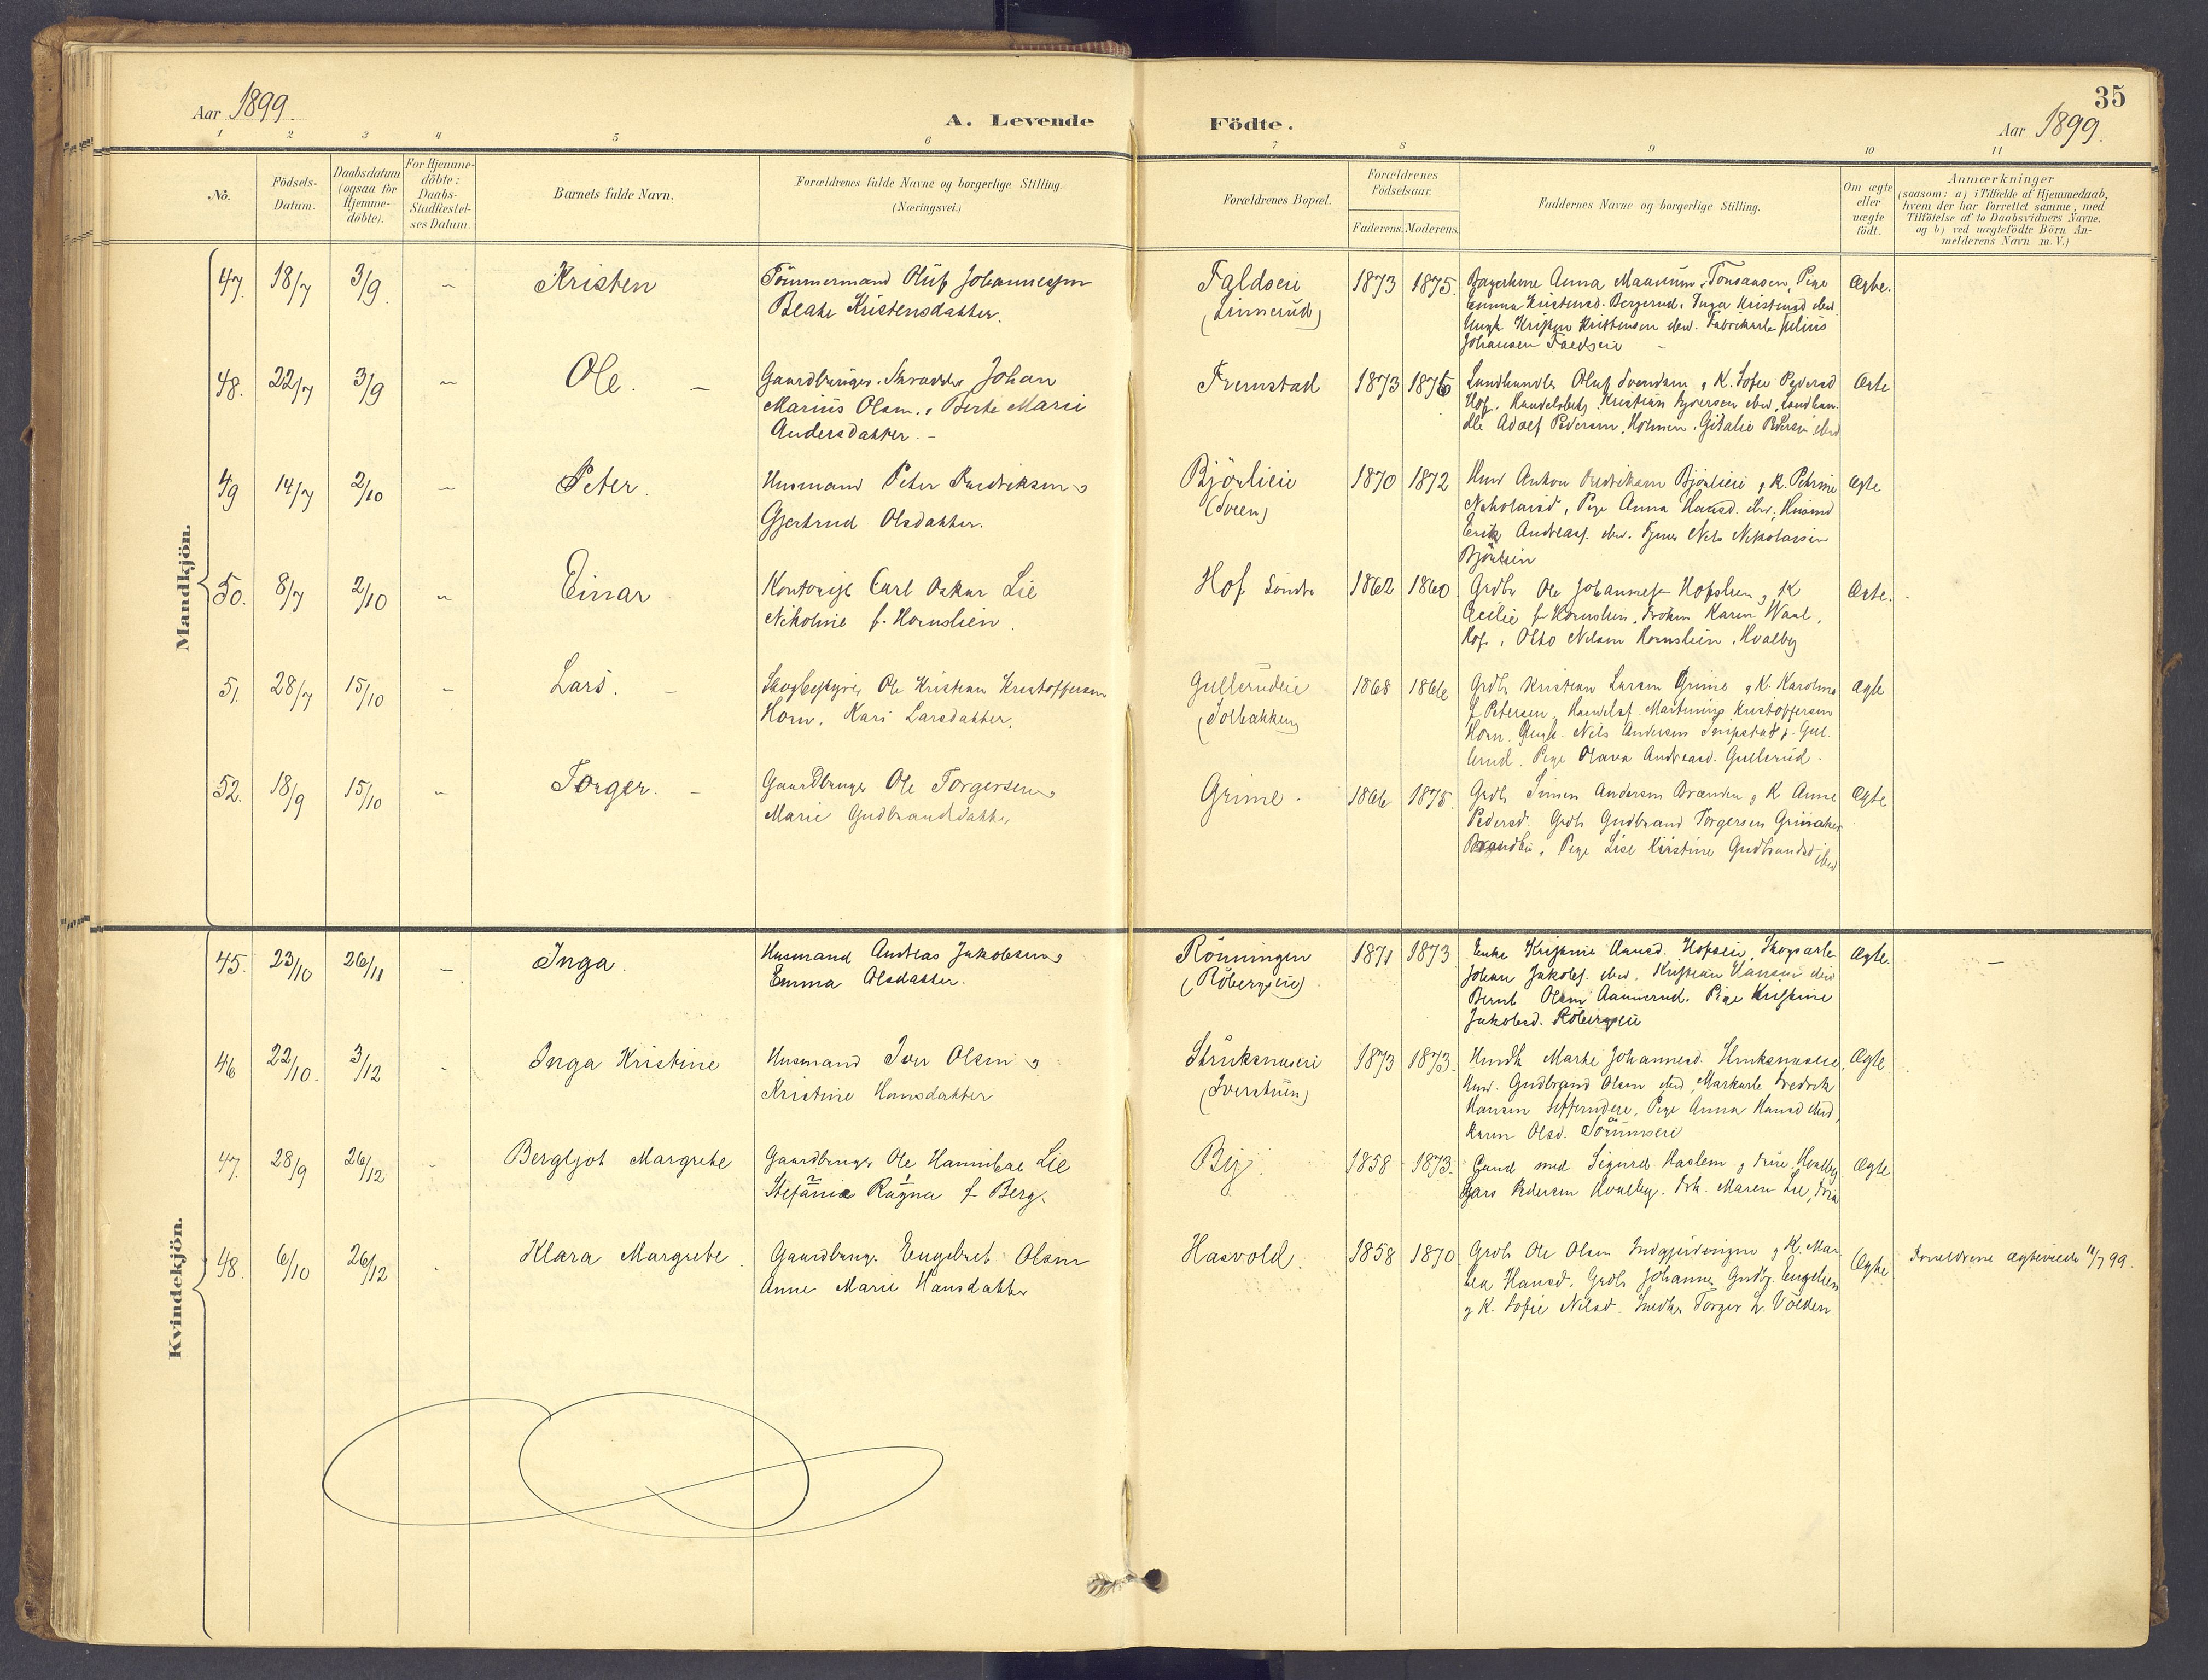 35
Aar 1899.
A. Levende
Födte.
Aar 1899.
1 2 3 4 5 6 7 8 9 10 11
No.
Födsels-
Datum.
Daabsdatum
(ogsaa for
Hjemme-
döbte).
For Hjemme-
döbte:
Daabs-
Stadfæstel-
ses Datum.
Barnets fulde Navn.
Forældrenes fulde Navne og borgerlige Stilling.
(Næringsvei.)
Forældrenes Bopæl.
Forældrenes
Födselsaar.
Faderens. Moderens.
Faddernes Navne og borgerlige Stilling.
Om ægte
eller
uægte
födt.
Anmærkninger
(saasom: a) i Tilfælde af Hjemmedaab,
hvem der har forrettet samme, med
Tilföielse af to Daabsvidners Navne.
og b) ved uægtefödte Börn An-
melderens Navn m. V.)
Mandkjön.
47. 18/7 3/9. – Kristen
Tömmermand Oluf Johannessen
Beate Kristensdatter.
Faldseie
(Linnerud)
1873 1875.
Anna Pige
Emma Kristensd. Bergerud, Inga Kristensd ibid.
Ungk Kristen Kristensen ibid. Fabrikarb Julius
Johansen Faldseie
Ægte.
48. 22/7 3/9 – Ole. –
Gaardbruger, Skrædder Johan
Marius Olsen, Berte Marie
Andersdatter. –
Fremstad
1873 1876
Landhandler Oluf Svendsen, K. Sofie Pedersd
Hof, Kristian ibid, Landhan-
dler Adolf Pedersen, Holmen, Pedersen ibid
Ægte
49 14/7 2/10 – Peter.
Husmand Peter Fredriksen og
Gjertrud Olsdatter.
Björlieie
(Sveen)
1870 1872
Husm Anton Fredriksen Björlieie og K. Petrine
Nikolaisd, Pige Anna Hansd. ibid, Husmd
Erik Andreass. ibid. Nils Nikolaisen
Björlieie
Ægte
50. 8/7 2/10 Einar
Carl Oskar Lie
Nikoline f. Hornslien.
Hof Söndre
1862 1860
Grdbr Ole Johannesen Hofslien og K
Cecilie f Hornslien, Froken Karen Waal,
Hof, Otto Nilsen Hornslien, Hvalby
Ægte.
51. 28/7 15/10 – Lars. –
Skogbestyrer Ole Kristian Kristoffersen
Horn, Kari Larsdatter.
Gullerudeie
(Solbakken)
1868 1866
Grdbr Kristian Larsen Grime og K. Karoline
f Petersen, Martinius Kristoffersen
Horn. Ungk. Nils Andersen Gul-
lerud. Pige Olava Andreasd. Gullerud.
Ægte
52. 18/9 15/10 – Torger. –
Gaardbruger Ole Torgersen og
Marie Gudbrandsdatter
Grime.
1866 1875.
Grdbr Simen Andersen Brænden og K Anne
Pedersd. Grdbr Gudbrand Torgersen Grinaker
Pige Lise Kirstine Gudbrandsd ibid
Ægte
Kvindekjön.
45. 23/10 26/11 – Inga.
Husmand Andreas Jakobsen og
Emma Olsdatter.
Rönningen
(Röbergseie)
1871 1873
Enke Kristine Hansd. Hofseie, Skogsarb
Johan Jakobs. ibid, Kristian Hansen ibid
Bernt Olsen Aamerud. Pige Kristine
Jakobsd. Röbergseie
Ægte. –
46 22/10. 3/12 Inga Kristine
Husmand Iver Olsen og
Kristine Hansdatter
Struksnæseie
(Iverstuen)
1873 1873.
Marte Johannesd. Struksnæseie,
Husm. Gudbrand Olsen ibid, Fredrik
Hansen Pige Anna Hansd ibid,
Karen Olsd.
Ægte
47. 28/9 26/12 Bergljot Margrete
Gaardbruger Ole Hannibal Lie
Stefanie Ragna f Berg.
By.
1858 1873.
med Sigurd Haslem og Frue, Hvalby
Lars Pedersen Hvalby. Maren Lie,
Ægte
48. 6/10 26/12 Klara Margrete.
Gaardbruger Engebret Olsen
Anne Marie Hansdatter
Hasvold.
1858 1870
Grdbr Ole Olsen og K. Mar-
Hansd. Grdbr Johannes Gudbr. Engelien
og K. Sofie Nilsd. Torger L. Volden
Ægte.
Forældrene ægteviede 11/7 99.